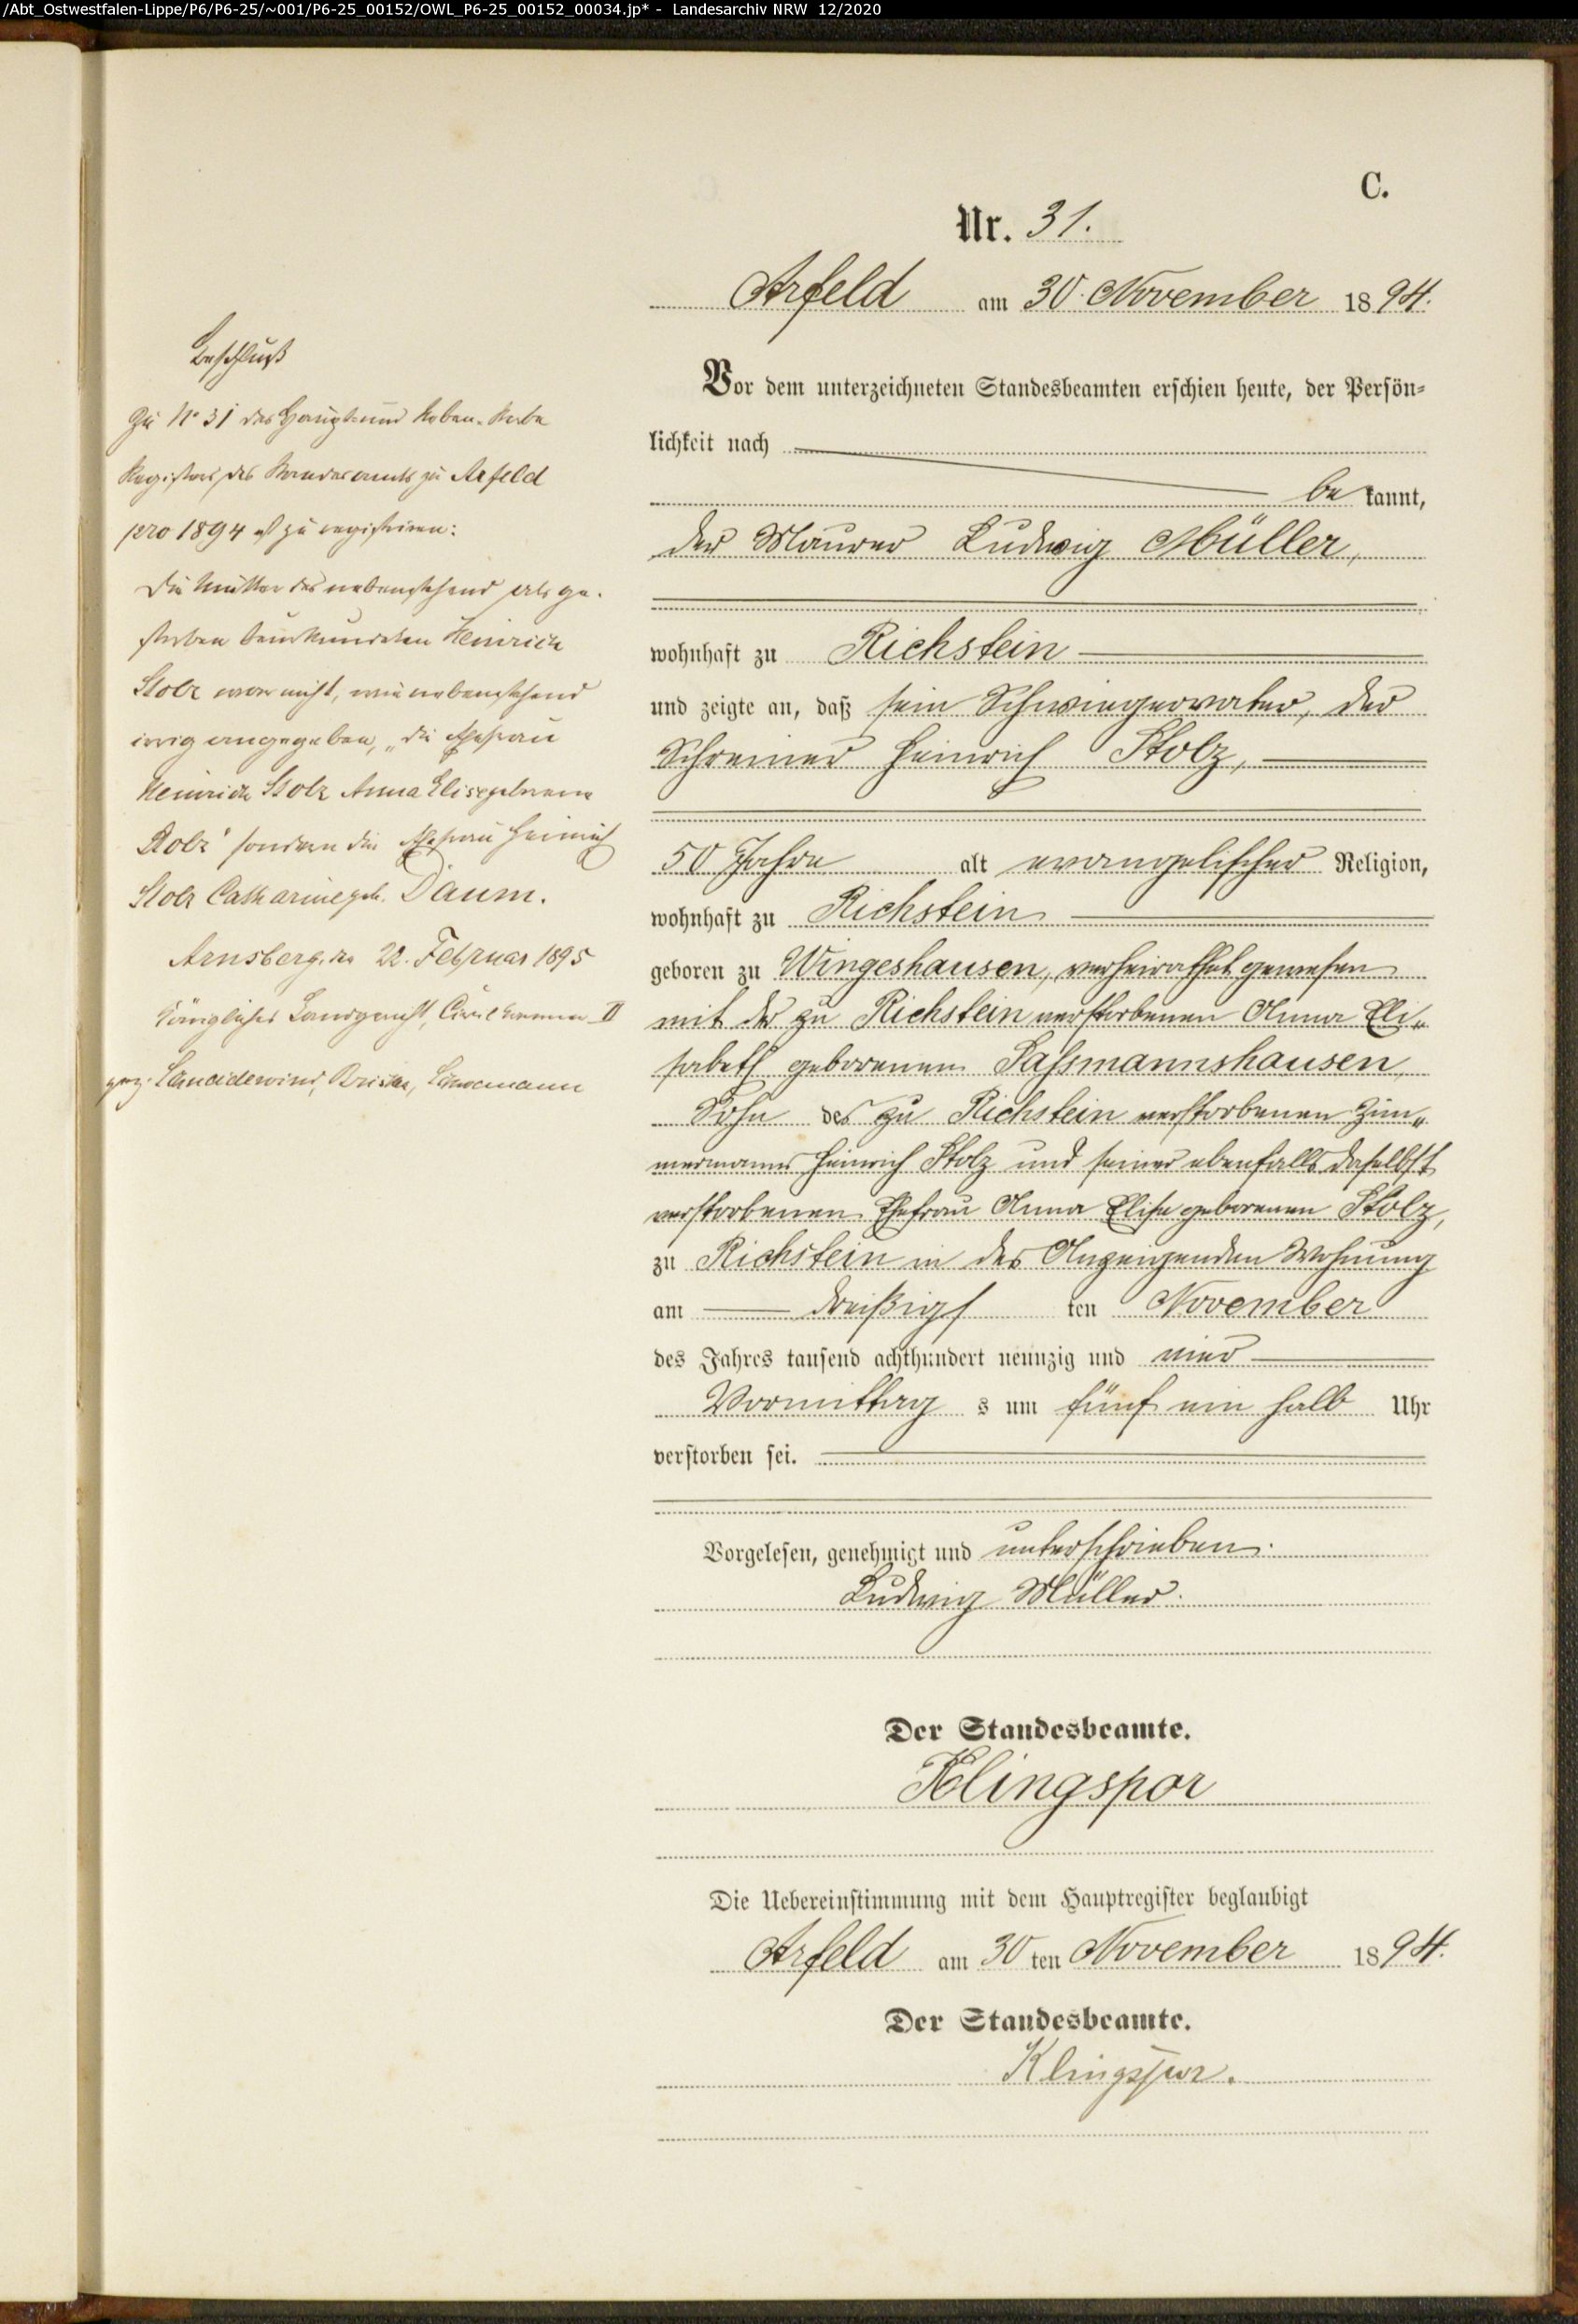 /Abt_Ostwestfalen-Lippe/P6/P6-25/~001/P6-25_00152/OWL_P6-25_00152_00034.jp* - Landesarchiv NRW 12/2020
C.
Nr. 31.
Arfeld am 30. November 1894.
Vor dem unterzeichneten Standesbeamten erschien heute, der Persön-
lichkeit nach
be kannt,
der Maurer Ludwig Müller,
wohnhaft zu Richstein
und zeigte an, daß sein Schwiegervater, der
Schreiner Heinrich Stolz,
50 Jahre alt evangelischer Religion,
wohnhaft zu Richstein
geboren zu Wingeshausen, verheirathet gewesen
mit der zu Richstein verstorbenen Anna Eli-
sabeth geborenen Saßmannshausen,
Sohn des zu Richstein verstorbenen Zim-
mermanns Heinrich Stolz und seiner ebenfalls daselbst
verstorbenen Ehefrau Anna Elise geborenen Stolz,
zu Richstein in des Anzeigenden Wohnung
am dreißigs ten November
des Jahres tausend achthundert neunzig und vier
Vormittag s um fünf ein halb Uhr
verstorben sei.
Vorgelesen, genehmigt und unterschrieben.
Ludwig Müller.
Der Standesbeamte.
Klingspor
Die Uebereinstimmung mit dem Hauptregister beglaubigt
Arfeld am 30 ten November 1894.
Der Standesbeamte.
Klingspor.
Beschluß
Zu No 31 des Haupt- und Neben-Sterbe
Registers des Standesamts zu Arfeld
pro 1894 ist zu registriren:
Die Mutter des nebenstehend als ge-
storben beurkundeten Heinrich
Stolz war nicht, wie nebenstehend
irrig angegeben, „die Ehefrau
Heinrich Stolz Anna Elise geborene
Stolz" sondern die Ehefrau Heinrich
Stolz Catharine geb. Daum.
Arnsberg, den 22. Februar 1895
Königliches Landgericht, Civilkammer II
gez. Schneidewind,